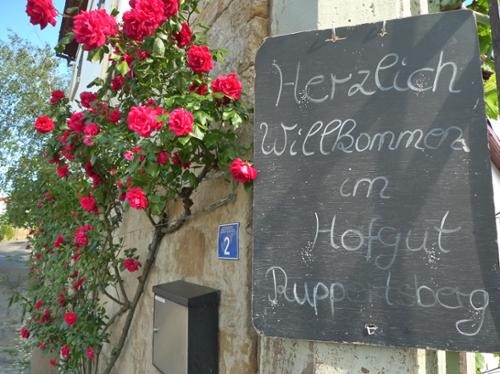 Herzlich
Willkommen
im
Hofgut
Ruppertsberg
2